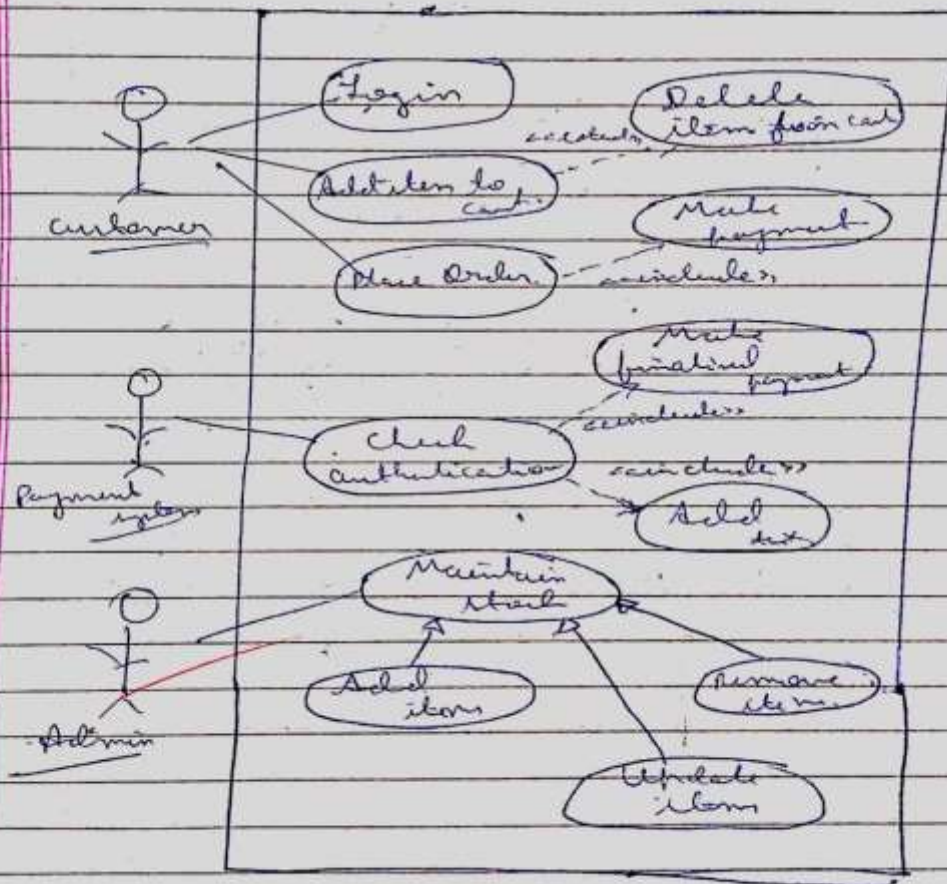 Login
Delete
item from cart
Add item to
cart.
<<extend>>
customer
Make
payment
Place Order.
<<include>>
Make
finalised
payment
<<include>>
Check
authentication
<<include>>
Payment
system
Add
Maintain
stock
Add
items
Remove
items.
Admin
Update
items